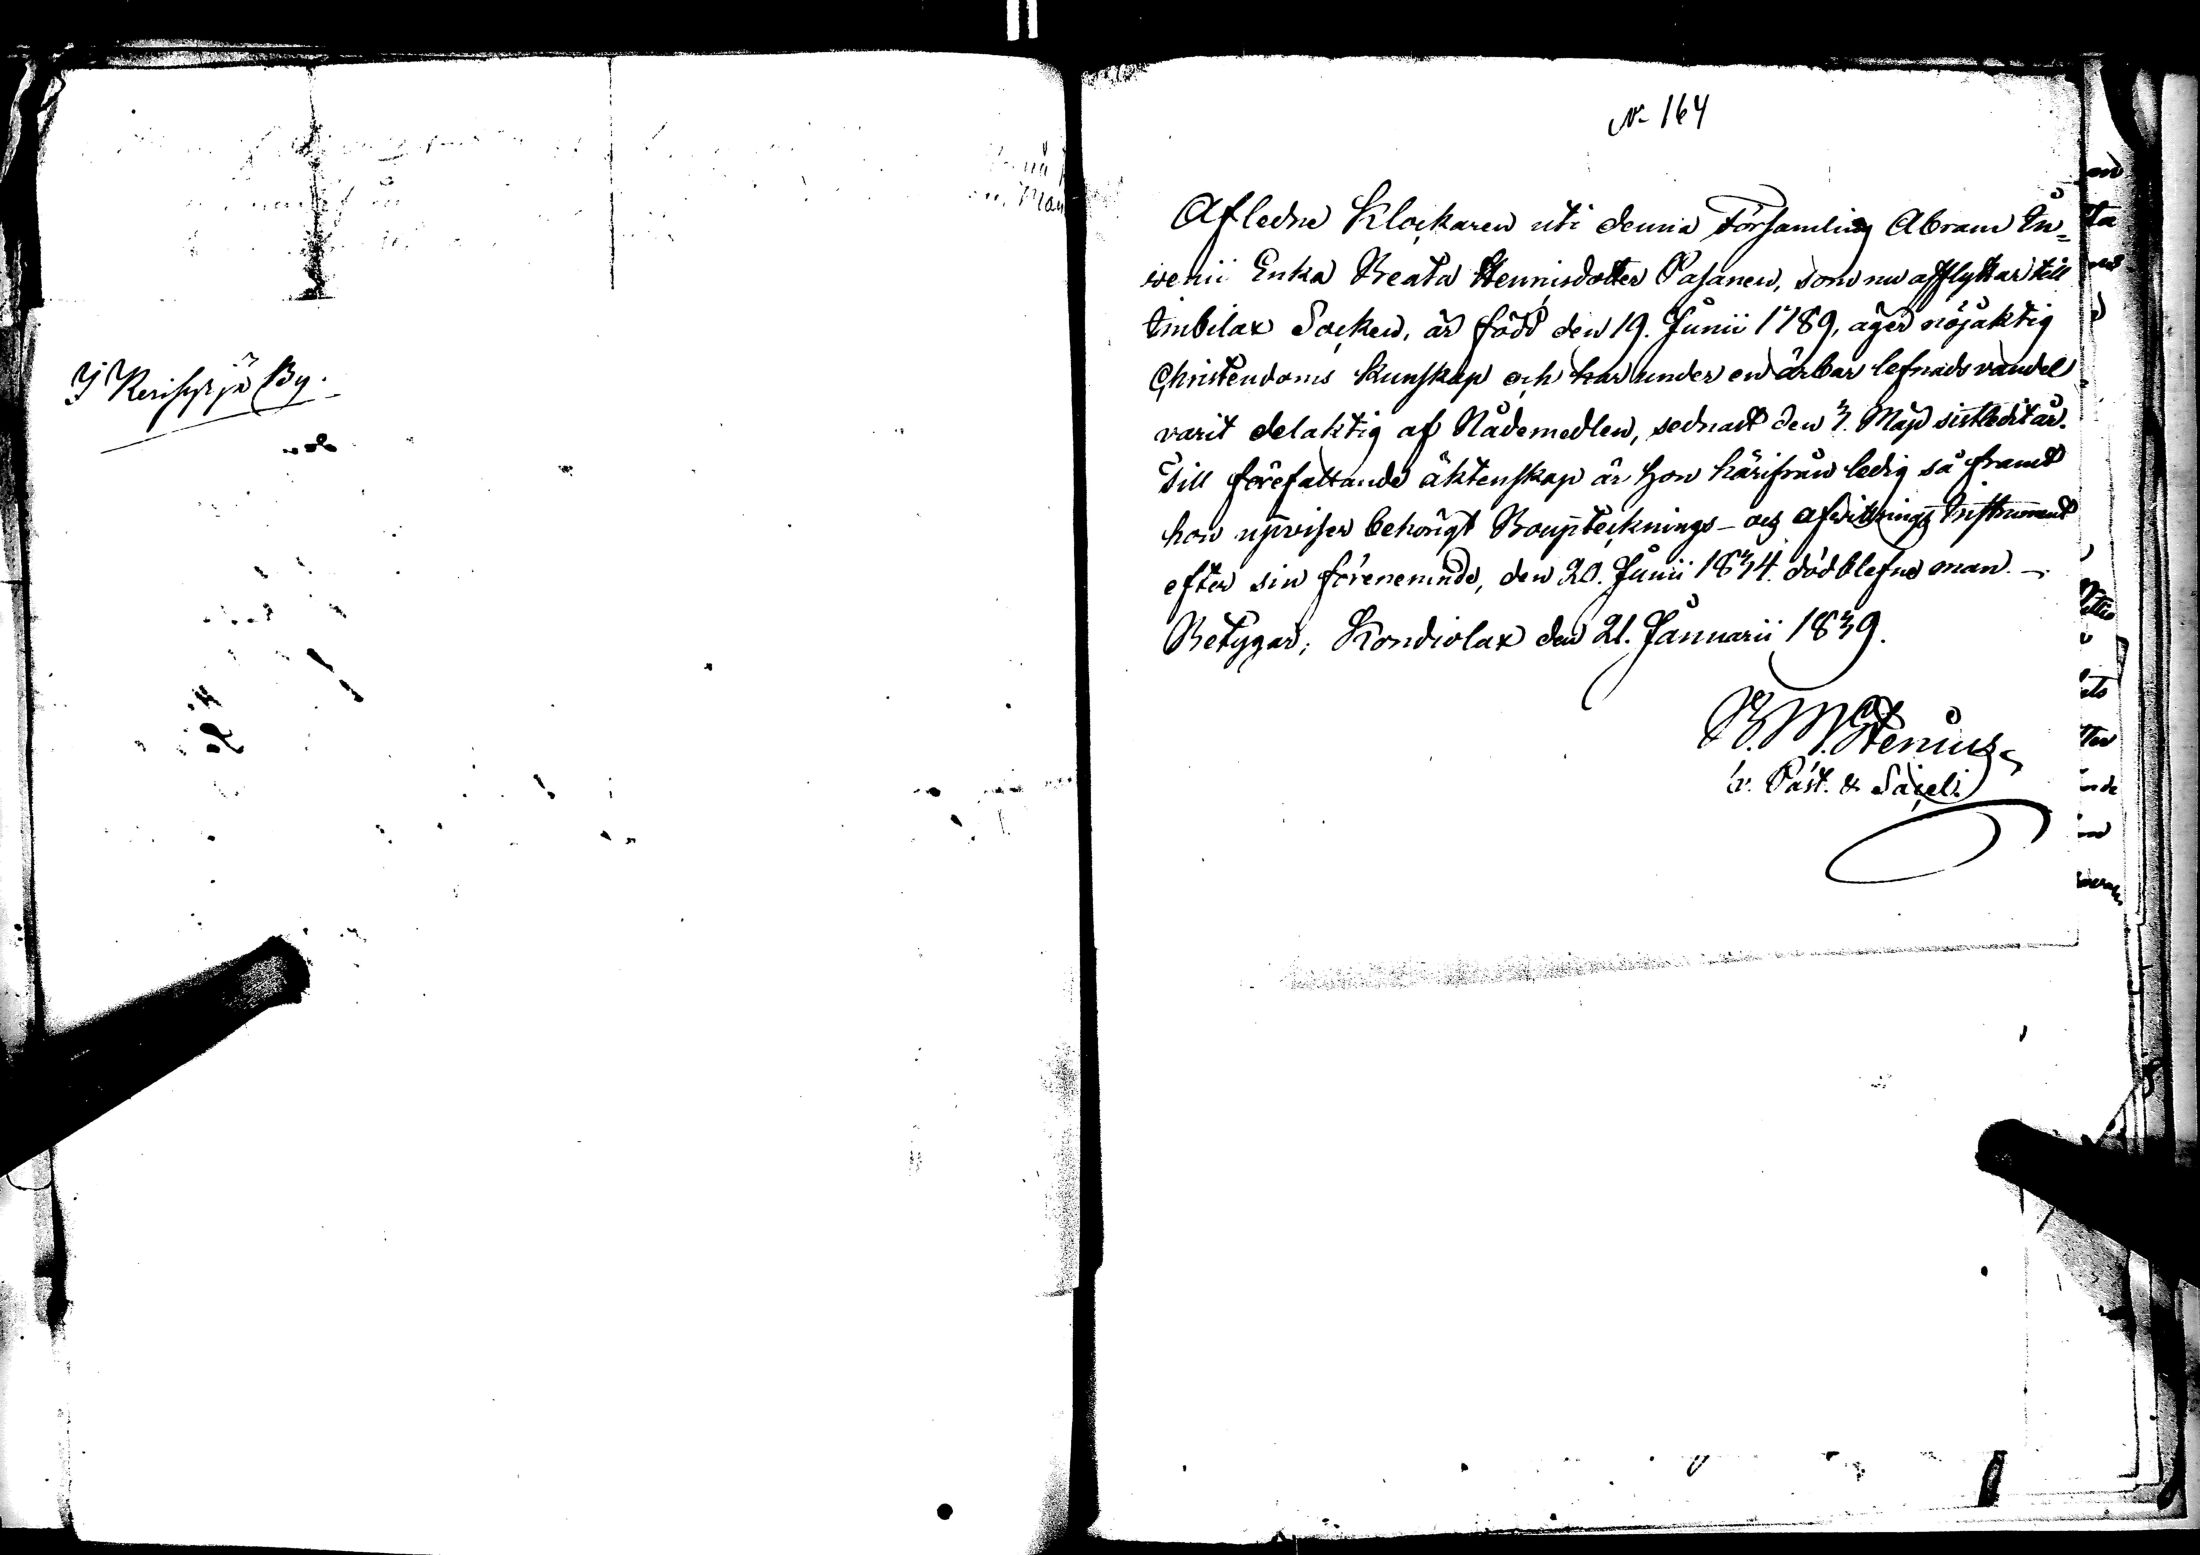 I Kerisyrjä By.
N. 164
Afledne Klockaren uti denna Församling Abram In=
venii Enka Beata Hennisdotter Pasanen, som nu afflyttar till
Imbilax Socken, är född den 19. Junii 1789, äger nöjaktig
Christendoms kunskap och har under en ärbar lefnads vandel
varit delaktig af Nådemedlen, sednast den 3. Maji sistledit år.
Till förefallande äktenskap är hon härifrån ledig så framt
hon uppviser behörigt Boupptecknings- och afvittrings Instrument
efter sin förenemnde, den 20. Junii 1834. dödblefne man. —
Betygar; Kondiolax den 21. Januarii 1839.
B. M. Stenius
v. Past. & Sacell.